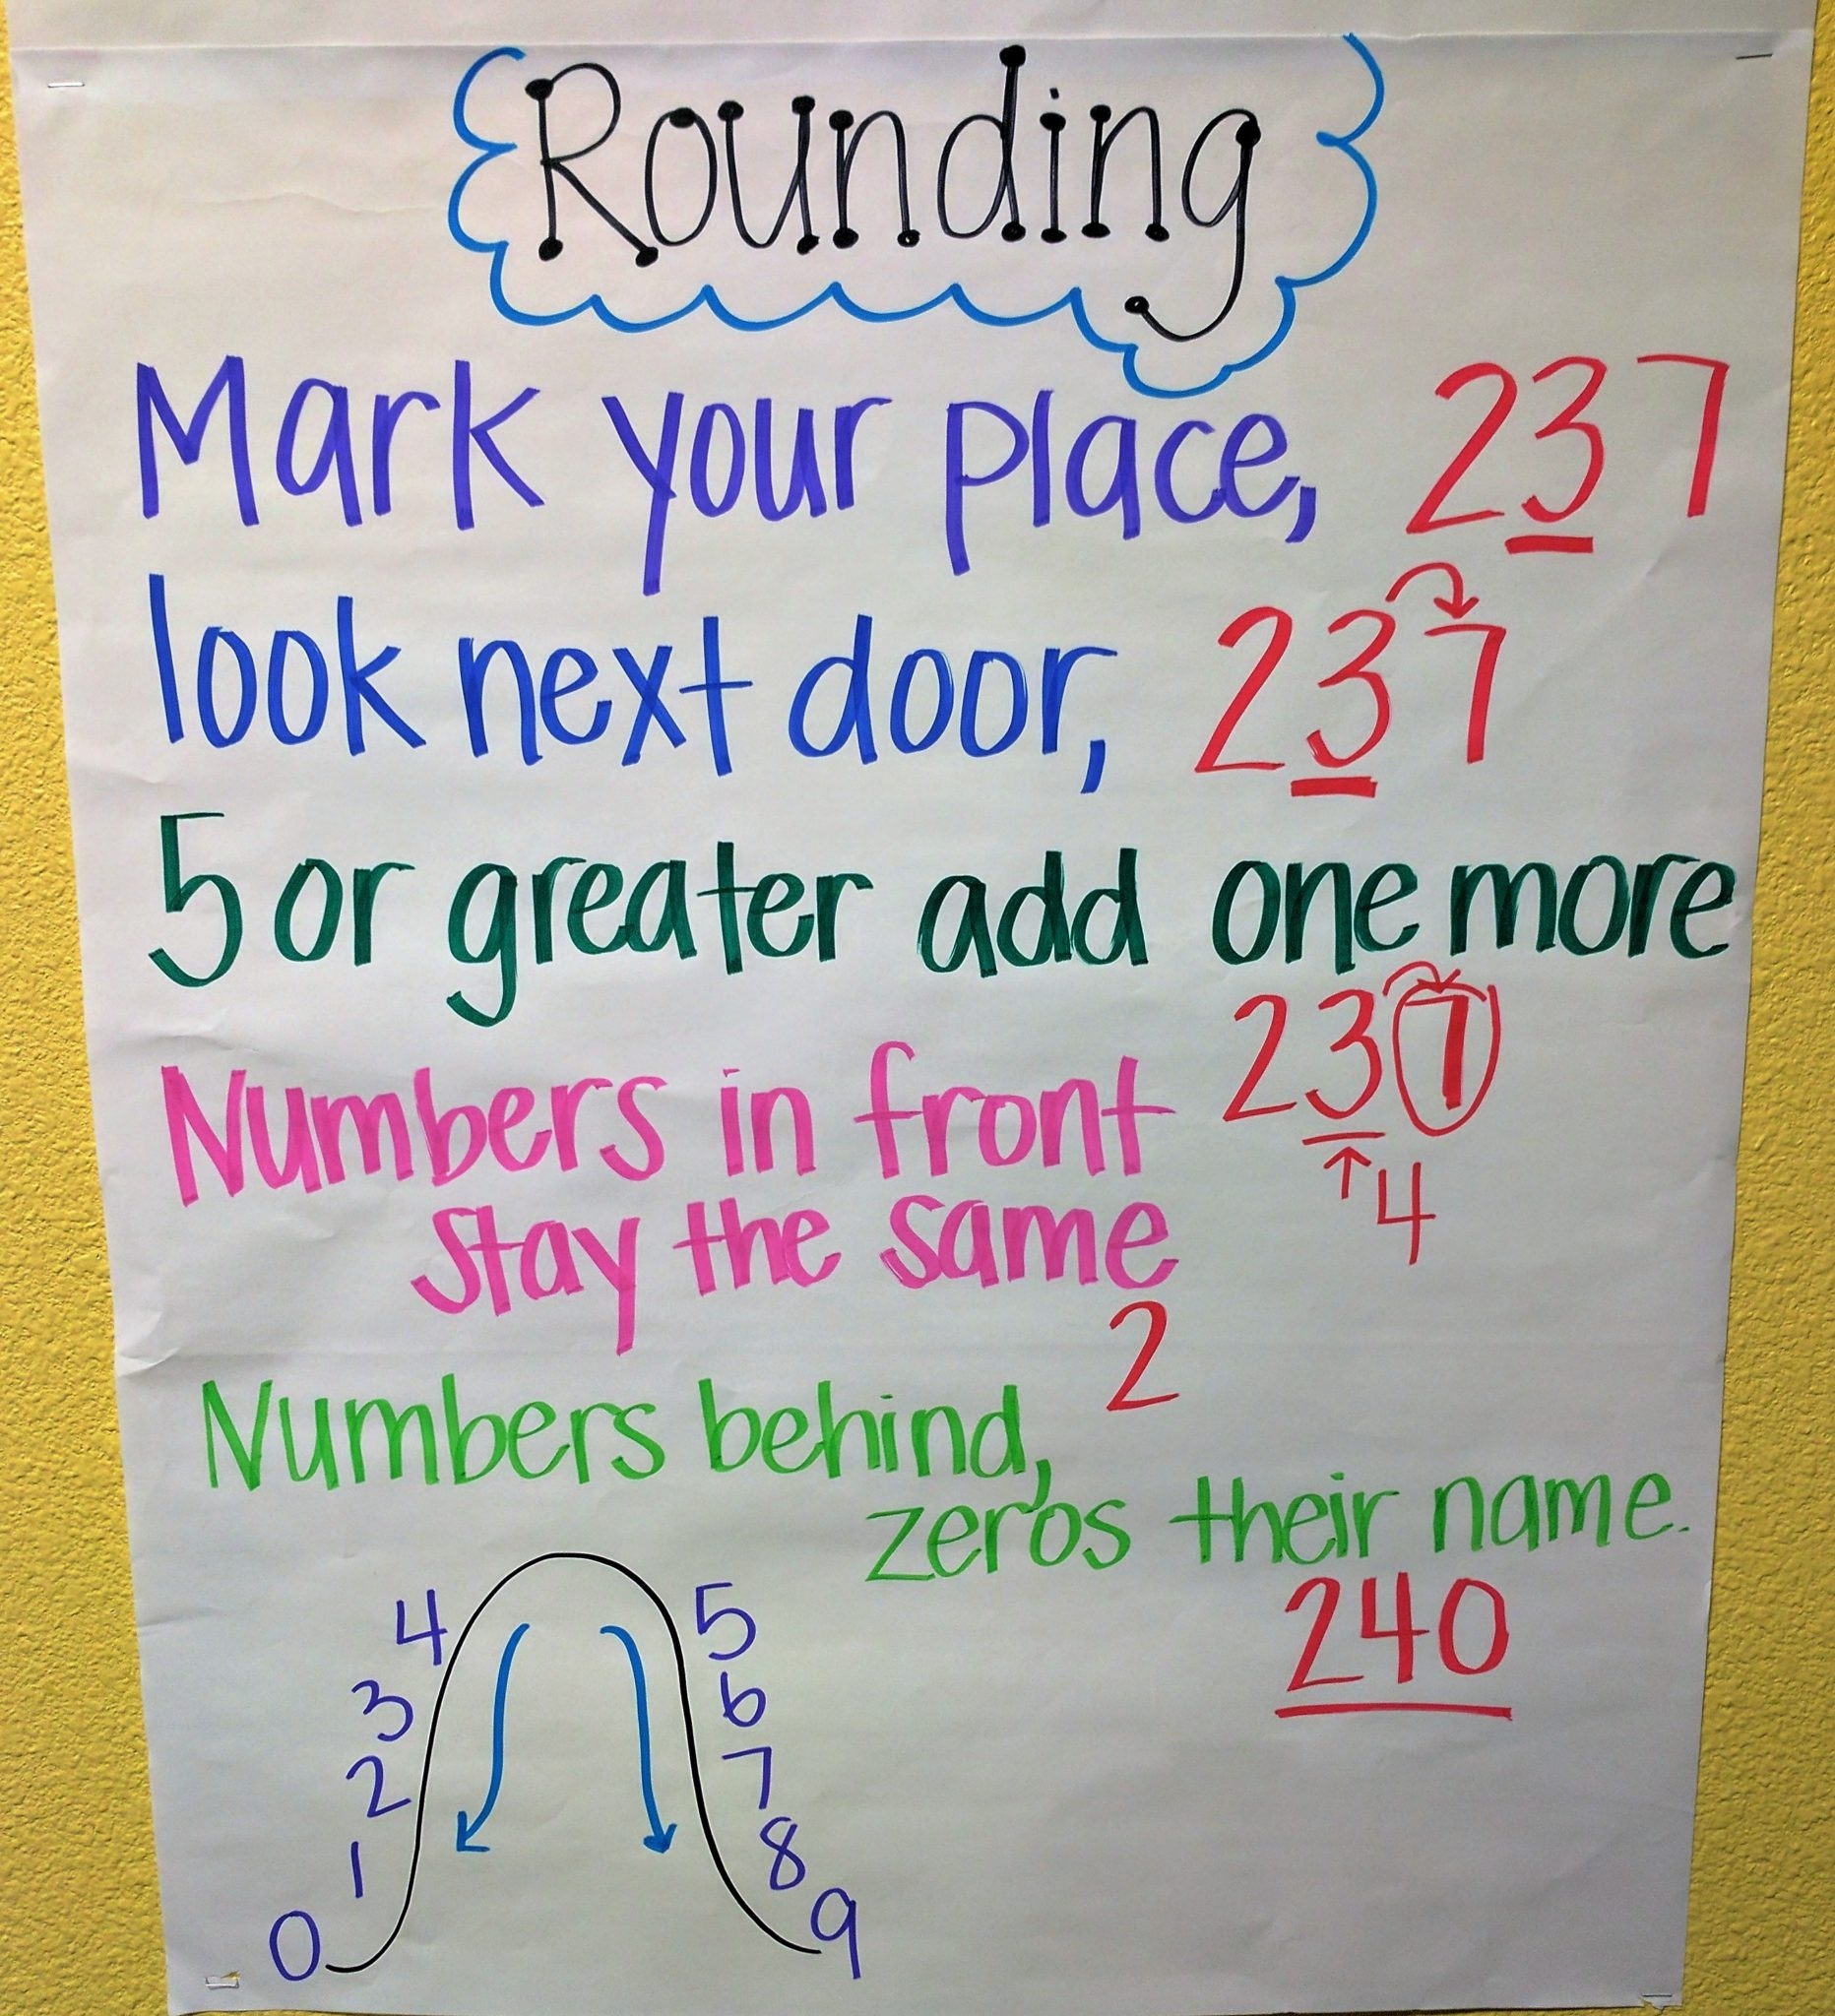 Rounding
Mark your place, 237
look next door, 237
5 or greater add one more
237
Numbers in front
4
stay the same
2
Numbers behind,
zeros their name.
240
4 5
3 6
2 7
1 8
0 9